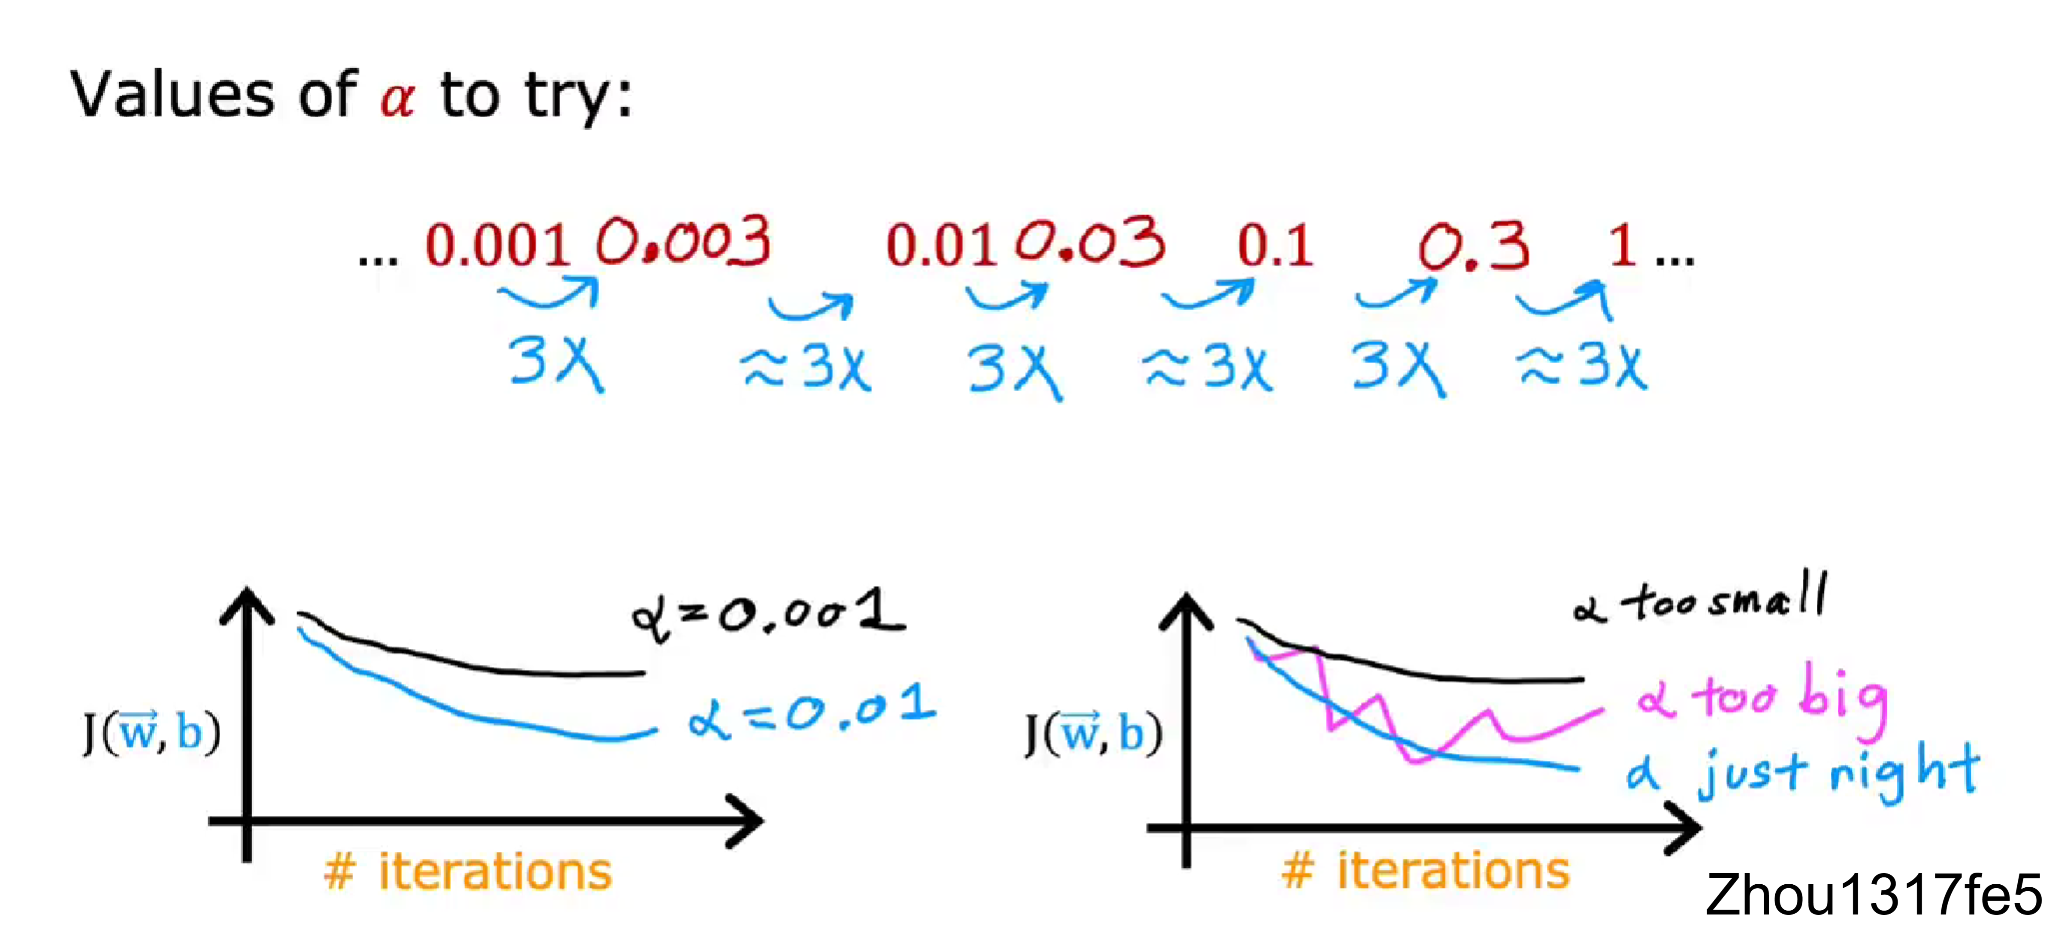 Values of α to try:
... 0.001 0.003 0.01 0.03 0.1 0.3 1 ...
3X ≈3X 3X ≈3X 3X ≈3X
α=0.001
α=0.01
J(w⃗, b)
# iterations
α too small
α too big
α just right
J(w⃗, b)
# iterations
Zhou1317fe5